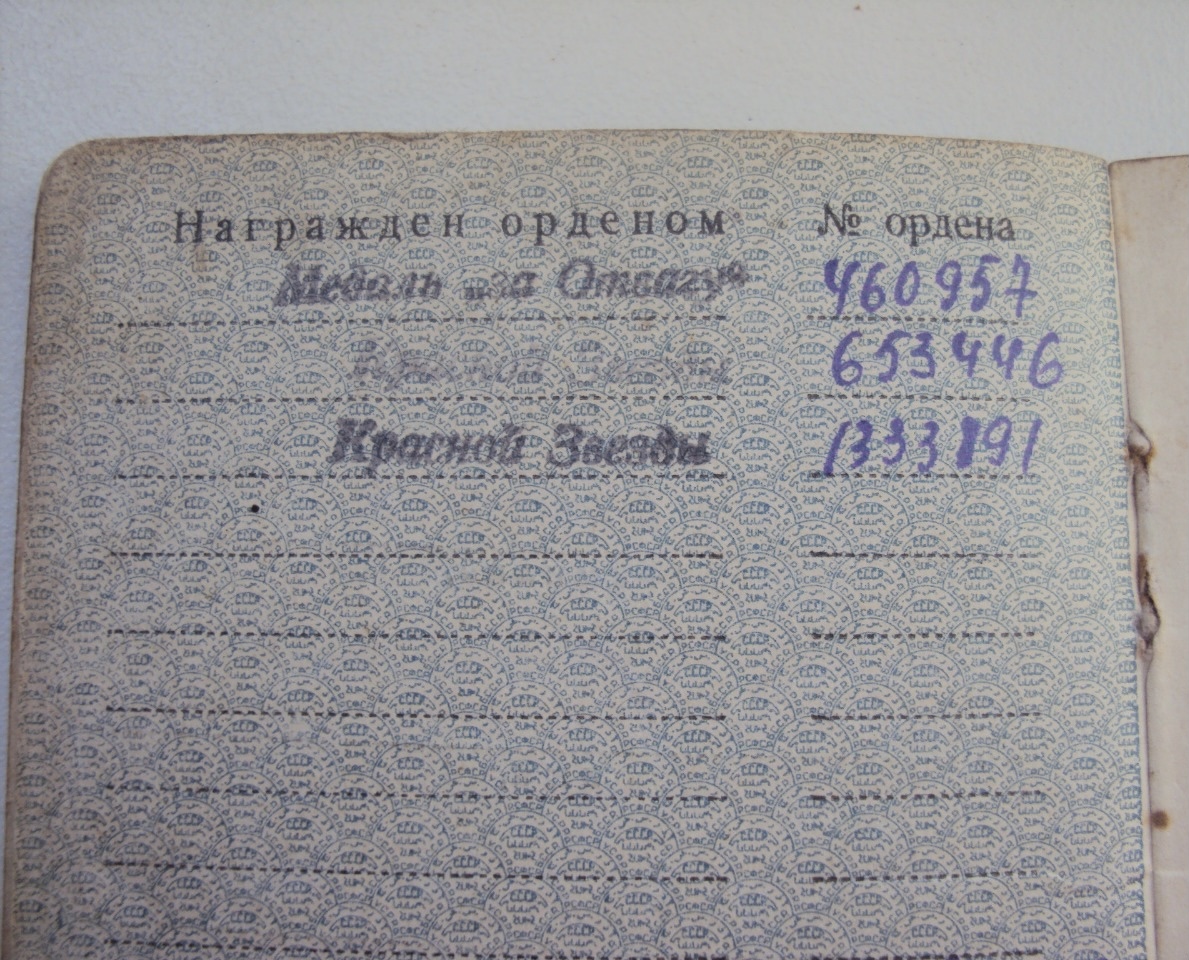 Награжден орденом № ордена
Медаль „за Отвагу“ 460957
Красной Звезды 653446
Красной Звезды 1333891